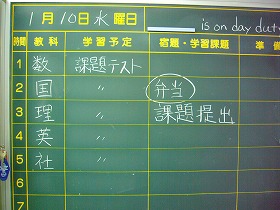 1月10日水曜日 ____is on day duty
時間 教科 学習予定 宿題・学習課題 準備
1 数 課題テスト
2 国 〃 弁当
3 理 〃 課題提出
4 英 〃
5 社 〃
6
7